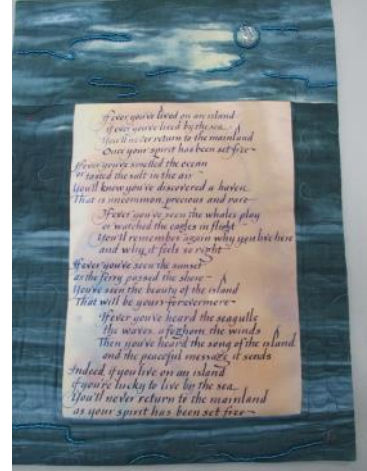 If ever you've lived on an island
if ever you've lived by the sea
You'll never return to the mainland
Once your spirit has been set free
If ever you've smelled the ocean
or tasted the salt in the air
You'll know you've discovered a haven
That is uncommon, precious and rare
If ever you've seen the whales play
or watched the eagles in flight
You'll remember again why you live here
and why it feels so right
If ever you've seen the sunset
as the ferry passed the shore
You've seen the beauty of the island
That will be yours forevermore
If ever you've heard the seagulls
the waves, a foghorn, the winds
Then you've heard the song of the island
and the peaceful message it sends
Indeed if you live on an island
if you're lucky to live by the sea
You'll never return to the mainland
as your spirit has been set free